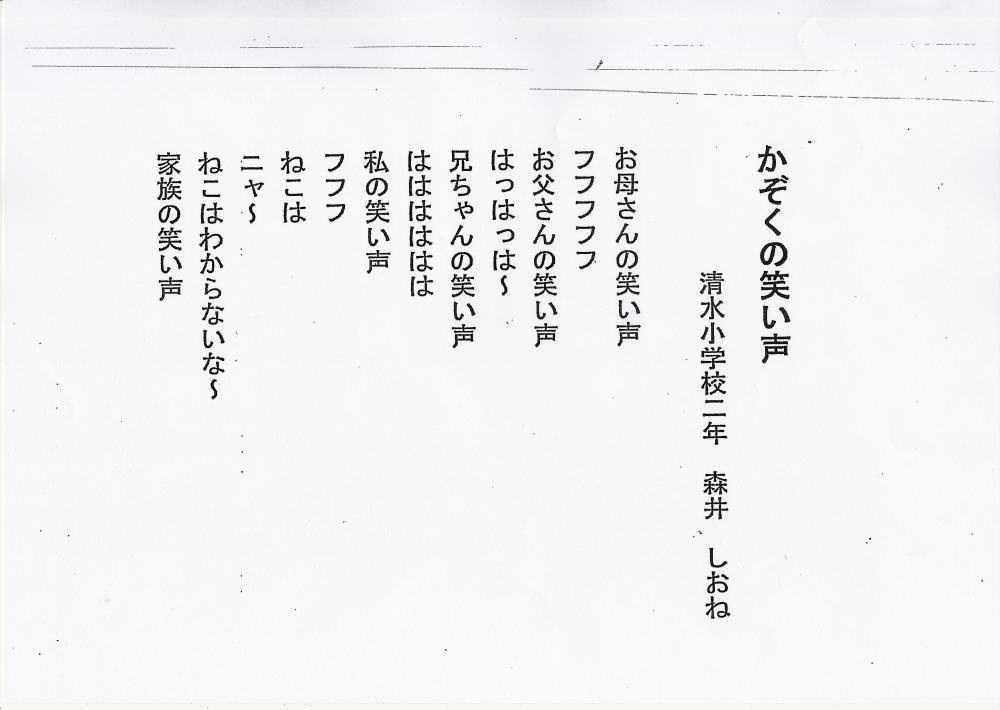 かぞくの笑い声
清水小学校二年　森井　しおね
お母さんの笑い声
フフフフフ
お父さんの笑い声
はっはっは～
兄ちゃんの笑い声
はははははは
私の笑い声
フフフ
ねこは
ニャ～
ねこはわからないな～
家族の笑い声